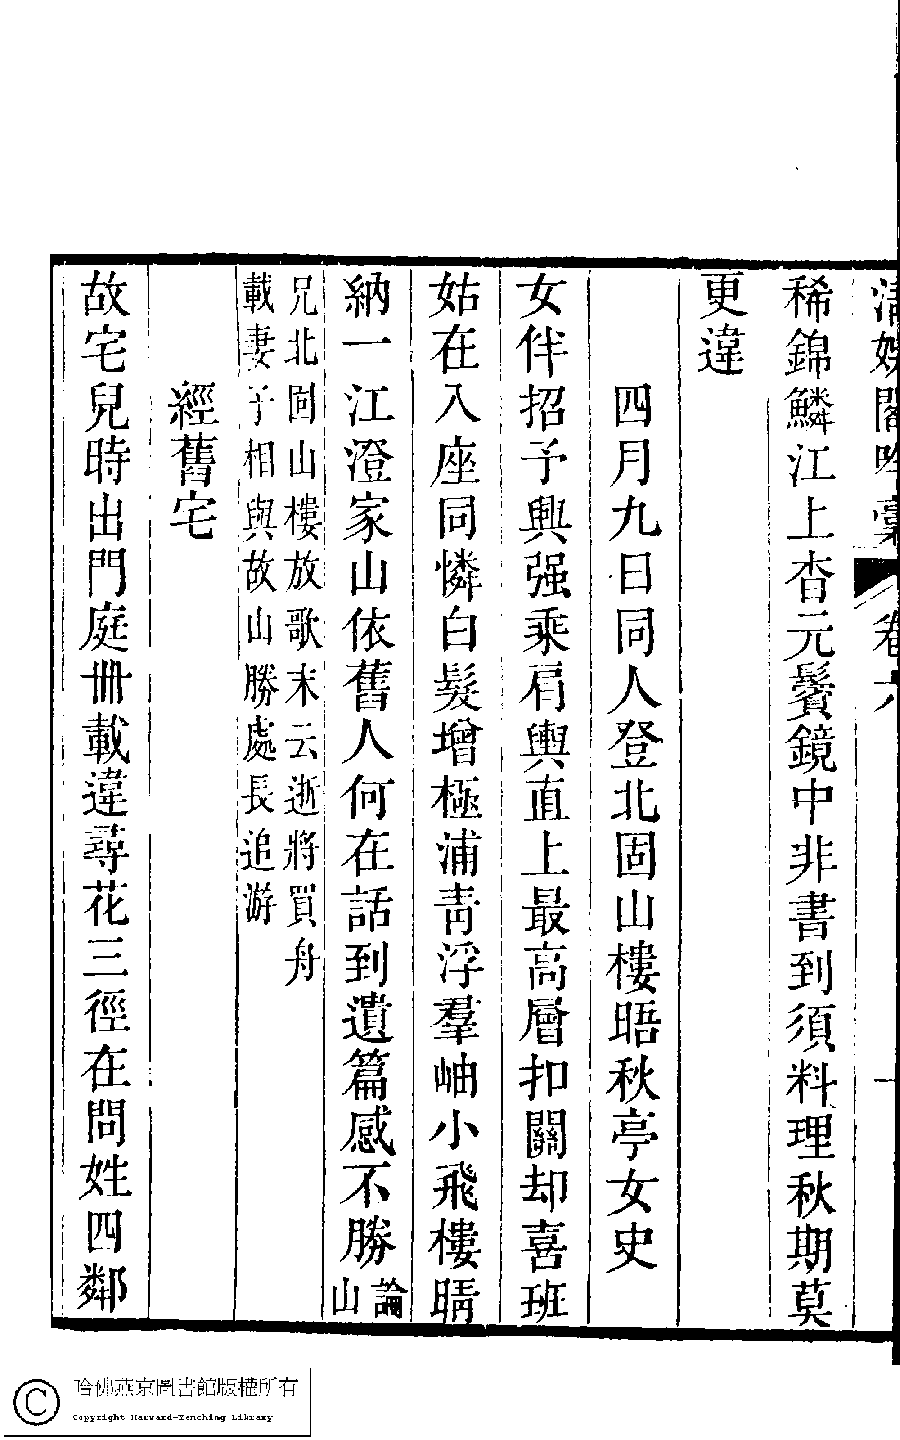 清娛閣吟稾 卷六
稀錦鱗江上杳元鬢鏡中非書到須料理秋期莫
更違
四月九日同人登北固山樓晤秋亭女史
女伴招予興强乘肩輿直上最高層扣關却喜班
姑在入座同憐白髮增極浦靑浮羣岫小飛樓晴
納一江澄家山依舊人何在話到遺篇感不勝論山
兄北固山樓放歌末云逝將買舟
載妻子相與故山勝處長追游
經舊宅
故宅兒時出門庭卌載違尋花三徑在問姓四鄰
哈佛燕京圖書館版權所有
Copyright Harvard-Yenching Library